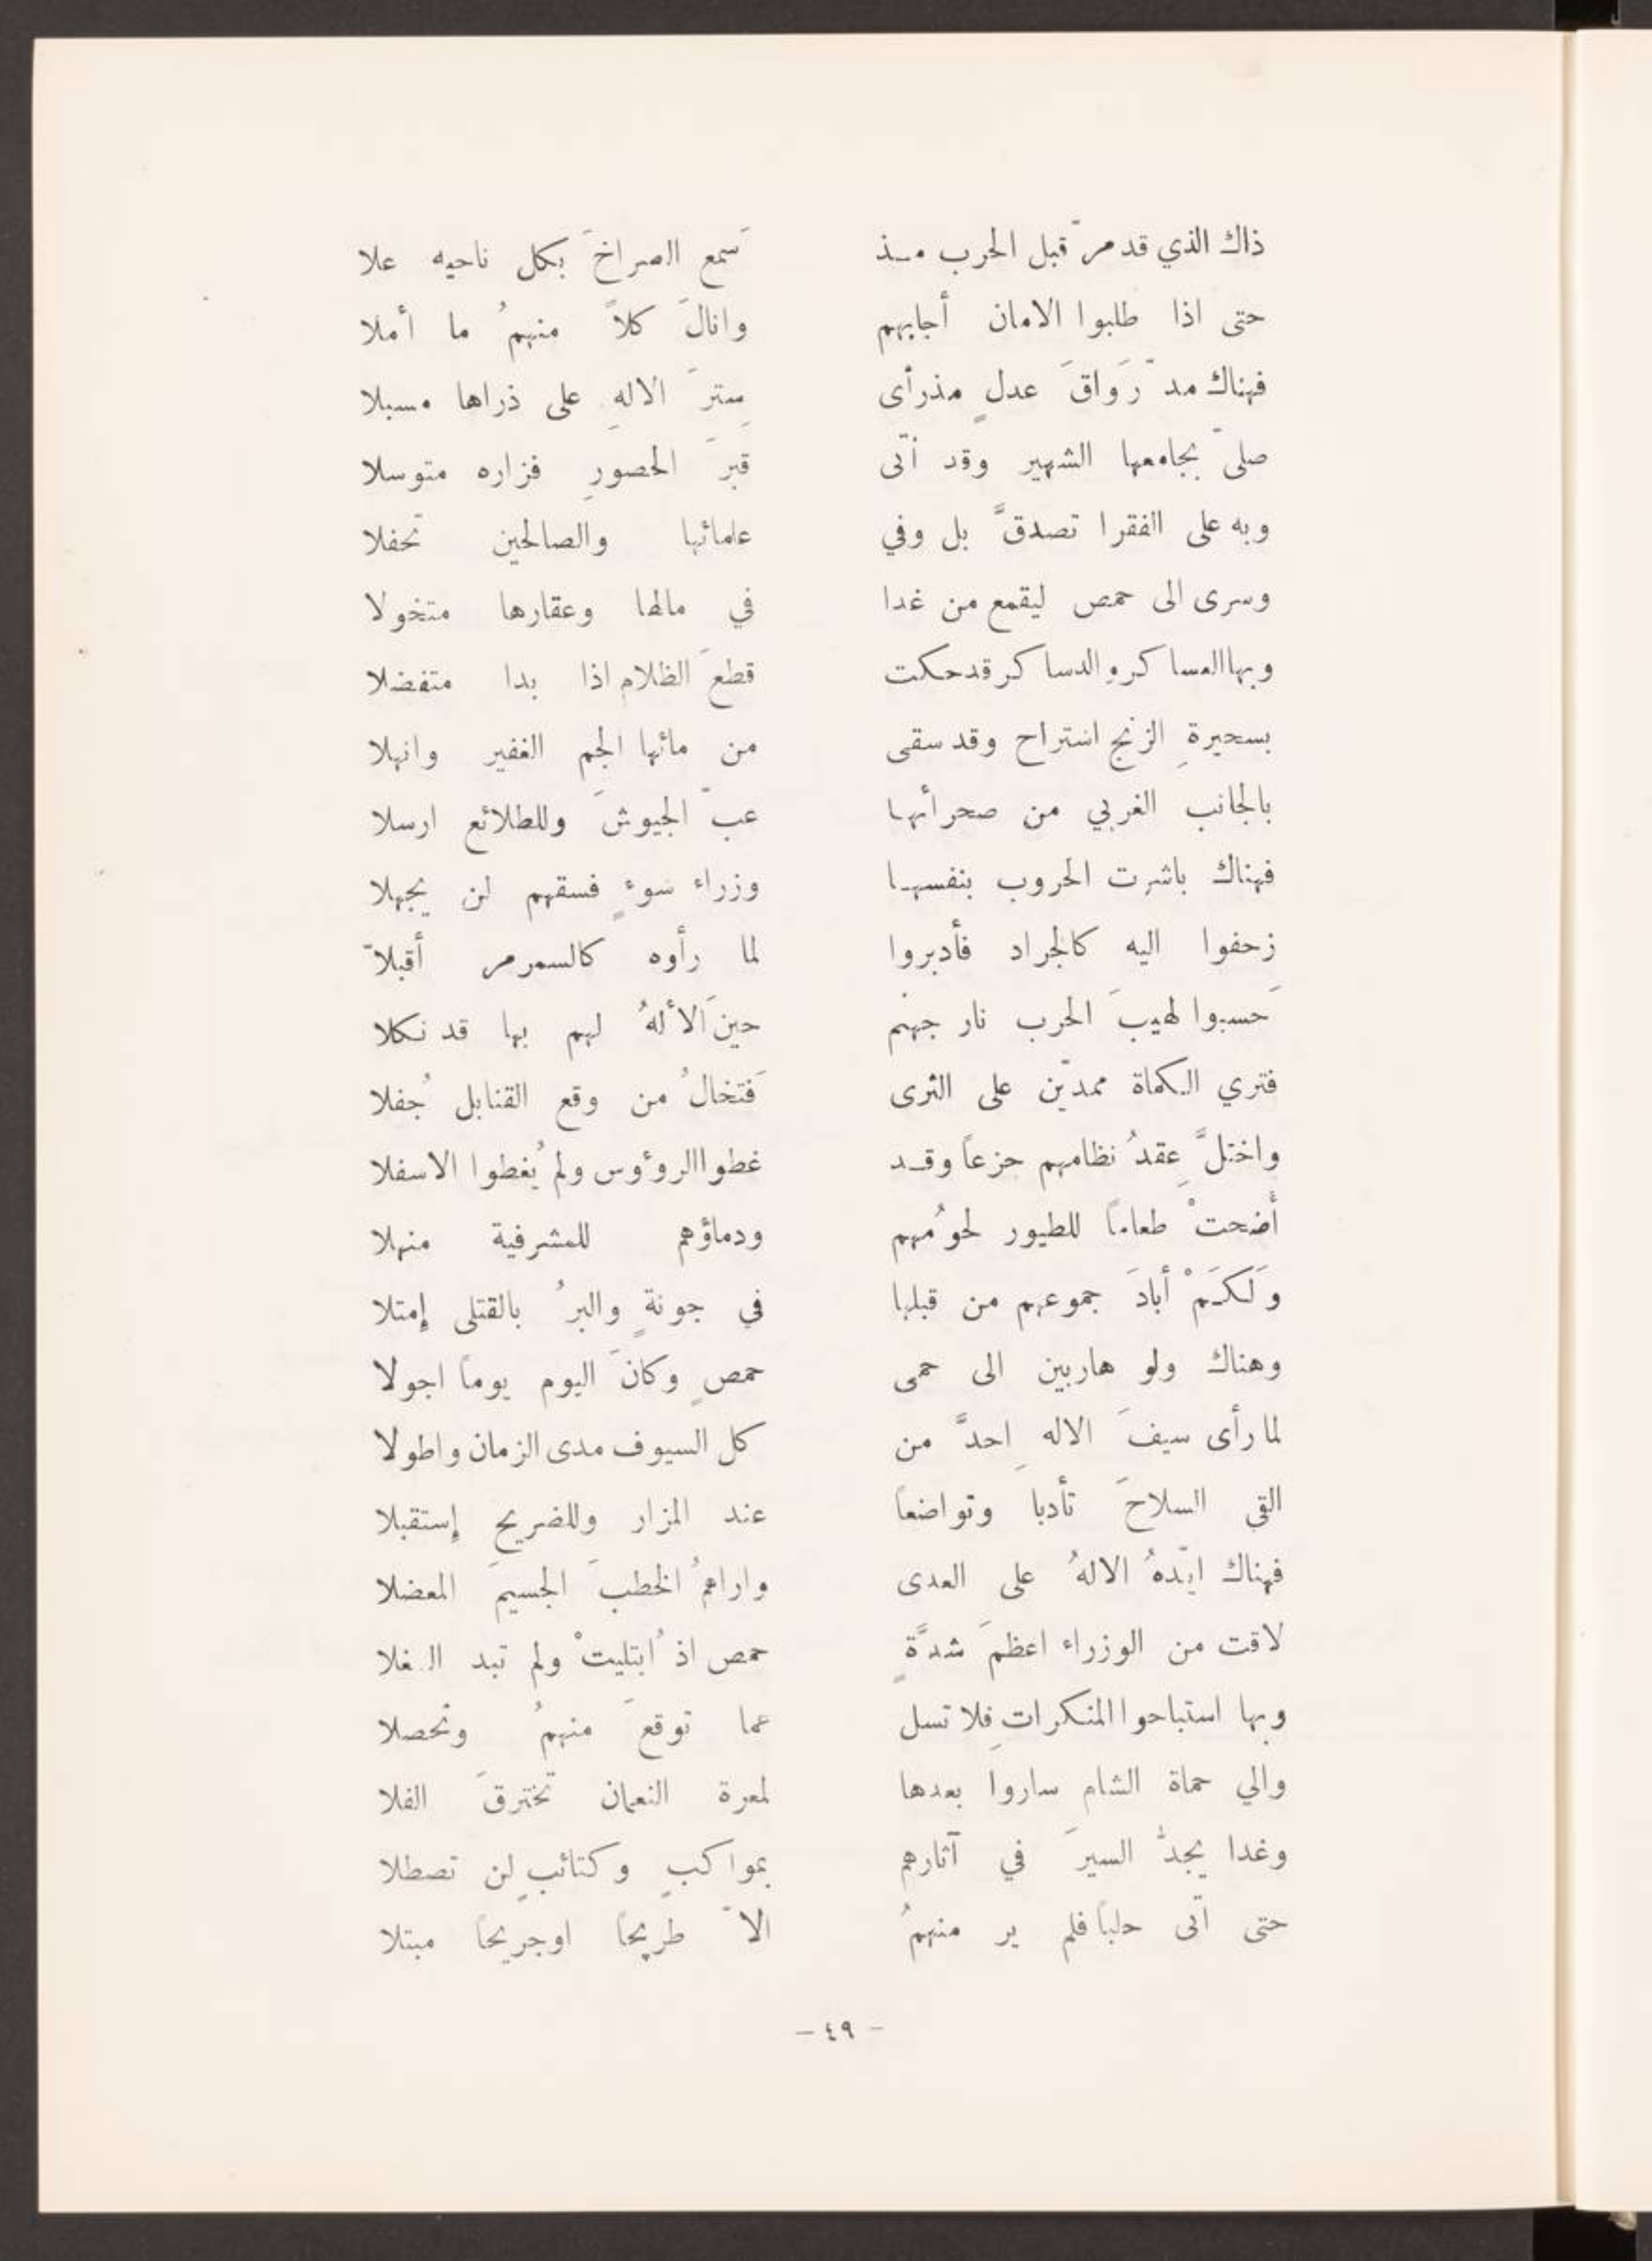 ذاك الذي قد مرّ قبل الحرب مـذ سَمع الصراخَ بكل ناحيه علا
حتى اذا طلبوا الامان أجابهم وانالَ كلاً منهمُ ما أملا
فهناك مدّ رَواقَ عدلٍ مذرأى سِترَ الالهِ على ذراها مسبلا
صلىّ بجامعها الشهير وقد أتى قبرَ الحصورِ فزاره متوسلا
وبه على الفقرا تصدقَّ بل وفي علمائها والصالحين تحفلا
وسرى الى حمص ليقمع من غدا في مالها وعقارها متخولا
وبها العساكر والدساكر قد حكت قطعَ الظلام اذا بدا متفضلا
بسحيرةِ الزنج استراح وقد سقى من مائها الجم الغفير وانهلا
بالجانب الغربي من صحرائها عبّ الجيوشَ وللطلائع ارسلا
فهناك باشرت الحروب بنفسهـا وزراء سوءٍ فسقهم لن يجهلا
زحفوا اليه كالجراد فأدبروا لما رأوه كالسمرمر أقبلاّ
حَسبوا لهيبَ الحرب نار جهنم حينَ الألهُ لهم بها قد نكلا
فتري الكماة ممدّين على الثرى فَتخالُ من وقع القنابل جُفلا
واختلَّ عِقدُ نظامهم جزعاً وقـد غطوا الروؤس ولم يُغطوا الاسفلا
أضحتْ طعاماً للطيور لحومُهم ودماؤهم للمشرفية منهلا
وَلكَمْ أبادَ جموعهم من قبلها في جونةٍ والبرُ بالقتلى إمتلا
وهناك ولو هاربين الى حمى حمصٍ وكانَ اليوم يوماً اجولا
لما رأى سيفَ الالهِ احدَّ من كل السيوف مدى الزمان واطولا
القى السلاحَ تأدباً وتواضعاً عند المزار وللضريح إستقبلا
فهناك ايّدهُ الالهُ على العدى واراهمُ الخطبَ الجسيمَ المعضلا
لاقت من الوزراء اعظمَ شدَّةٍ حمص اذ ابُتليتْ ولم تبد الـغلا
وبها استباحوا المنكراتِ فلا تسل عما توقعَ منهمُ وتحصلا
والي حماة الشام ساروا بعدها لمعرة النعمان تخترقَ الفلا
وغدا يجدُّ السيرَ في آثارهم بمواكبٍ وكتائبٍ لن تصطلا
حتى أتى حلباً فلم ير منهمُ الاّ طريحاً اوجريحاً مبتلا
- ٤٩ -